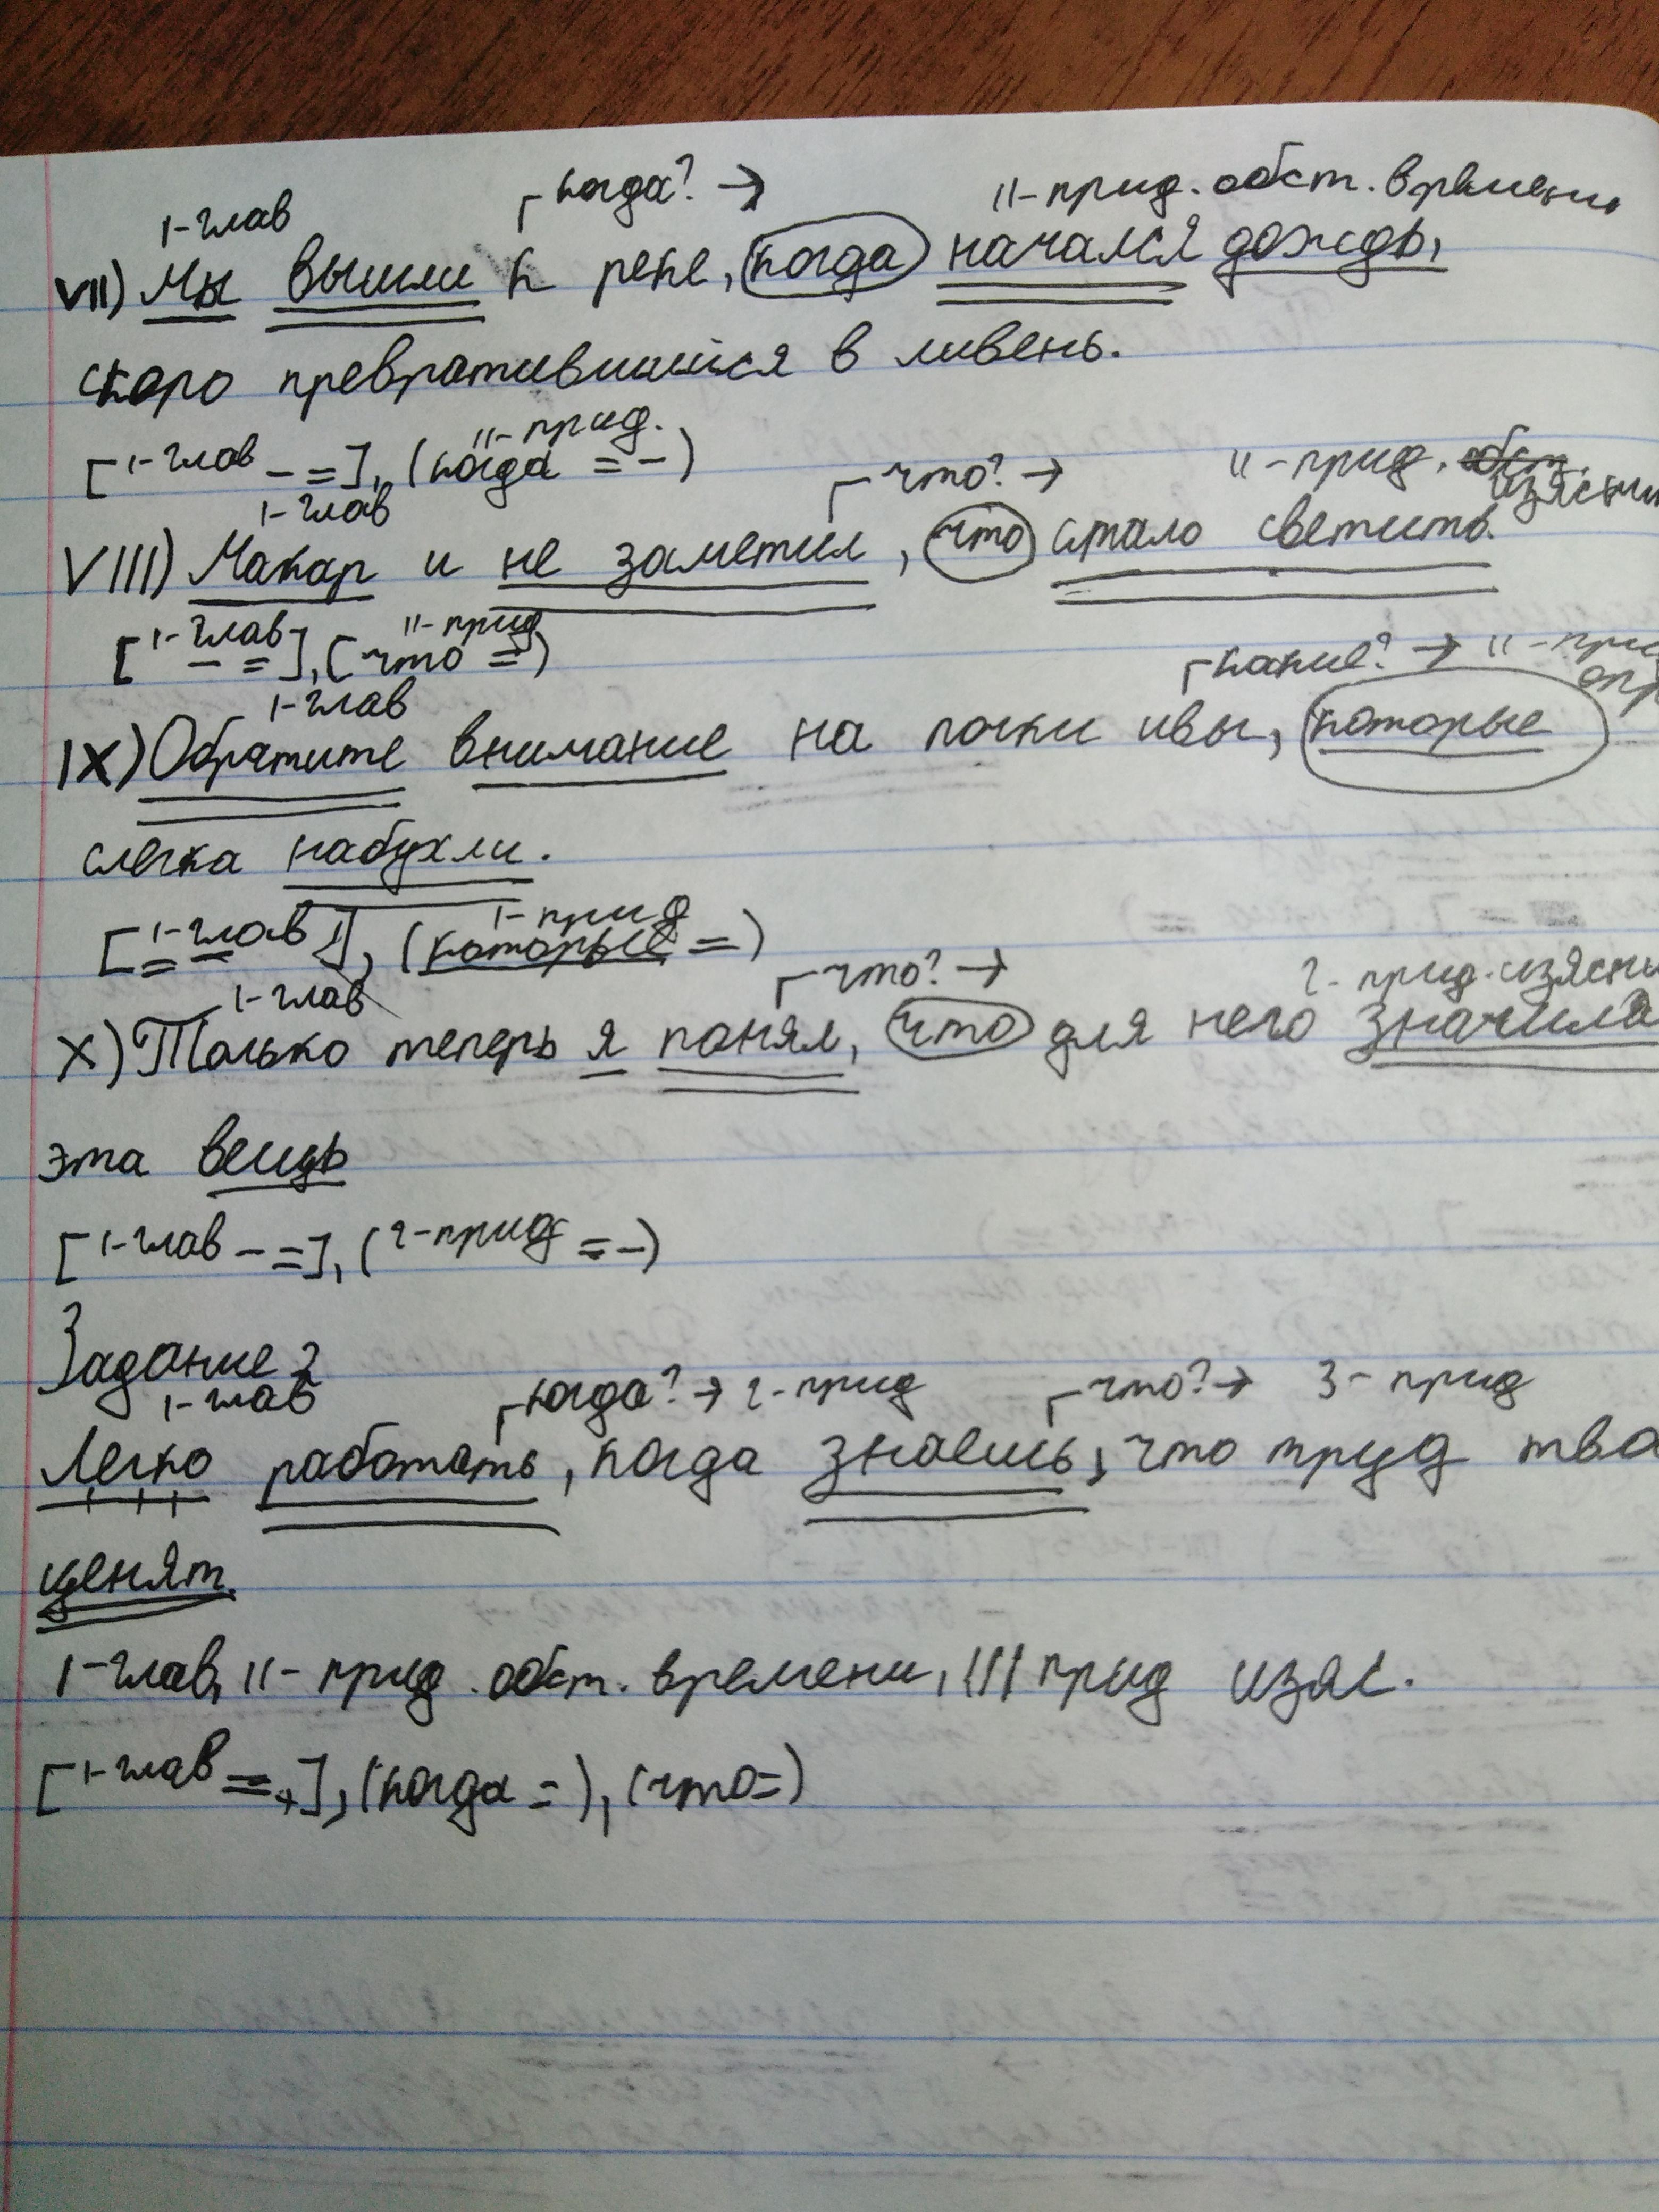 ┌ когда? → II-прид. обст. времени
I-глав
VII) Мы вышли к реке, когда начался дождь,
скоро превратившийся в ливень.
[I-глав - =], (когда II-прид. = -)
┌ что? → II-прид. изяснит
I-глав
VIII) Макар и не заметил, что стало светить.
[I-глав - =], (что II-прид =)
┌ какие? → II-при опр
I-глав
IX) Обратите внимание на почки ивы, которые
слегка набухли.
[I-глав = -], (которые I-прид =)
┌ что? → 2-прид. изясни
I-глав
X) Только теперь я понял, что для него значила
эта вещь
[I-глав - =], (2-прид = -)
Задание 2
I-глав ┌ когда? → 2-прид ┌ что? → 3-прид
Легко работать, когда знаешь, что труд тво
ценят.
I-глав, II-прид. обст. времени, III прид изяс.
[I-глав = +], (когда =), (что =)